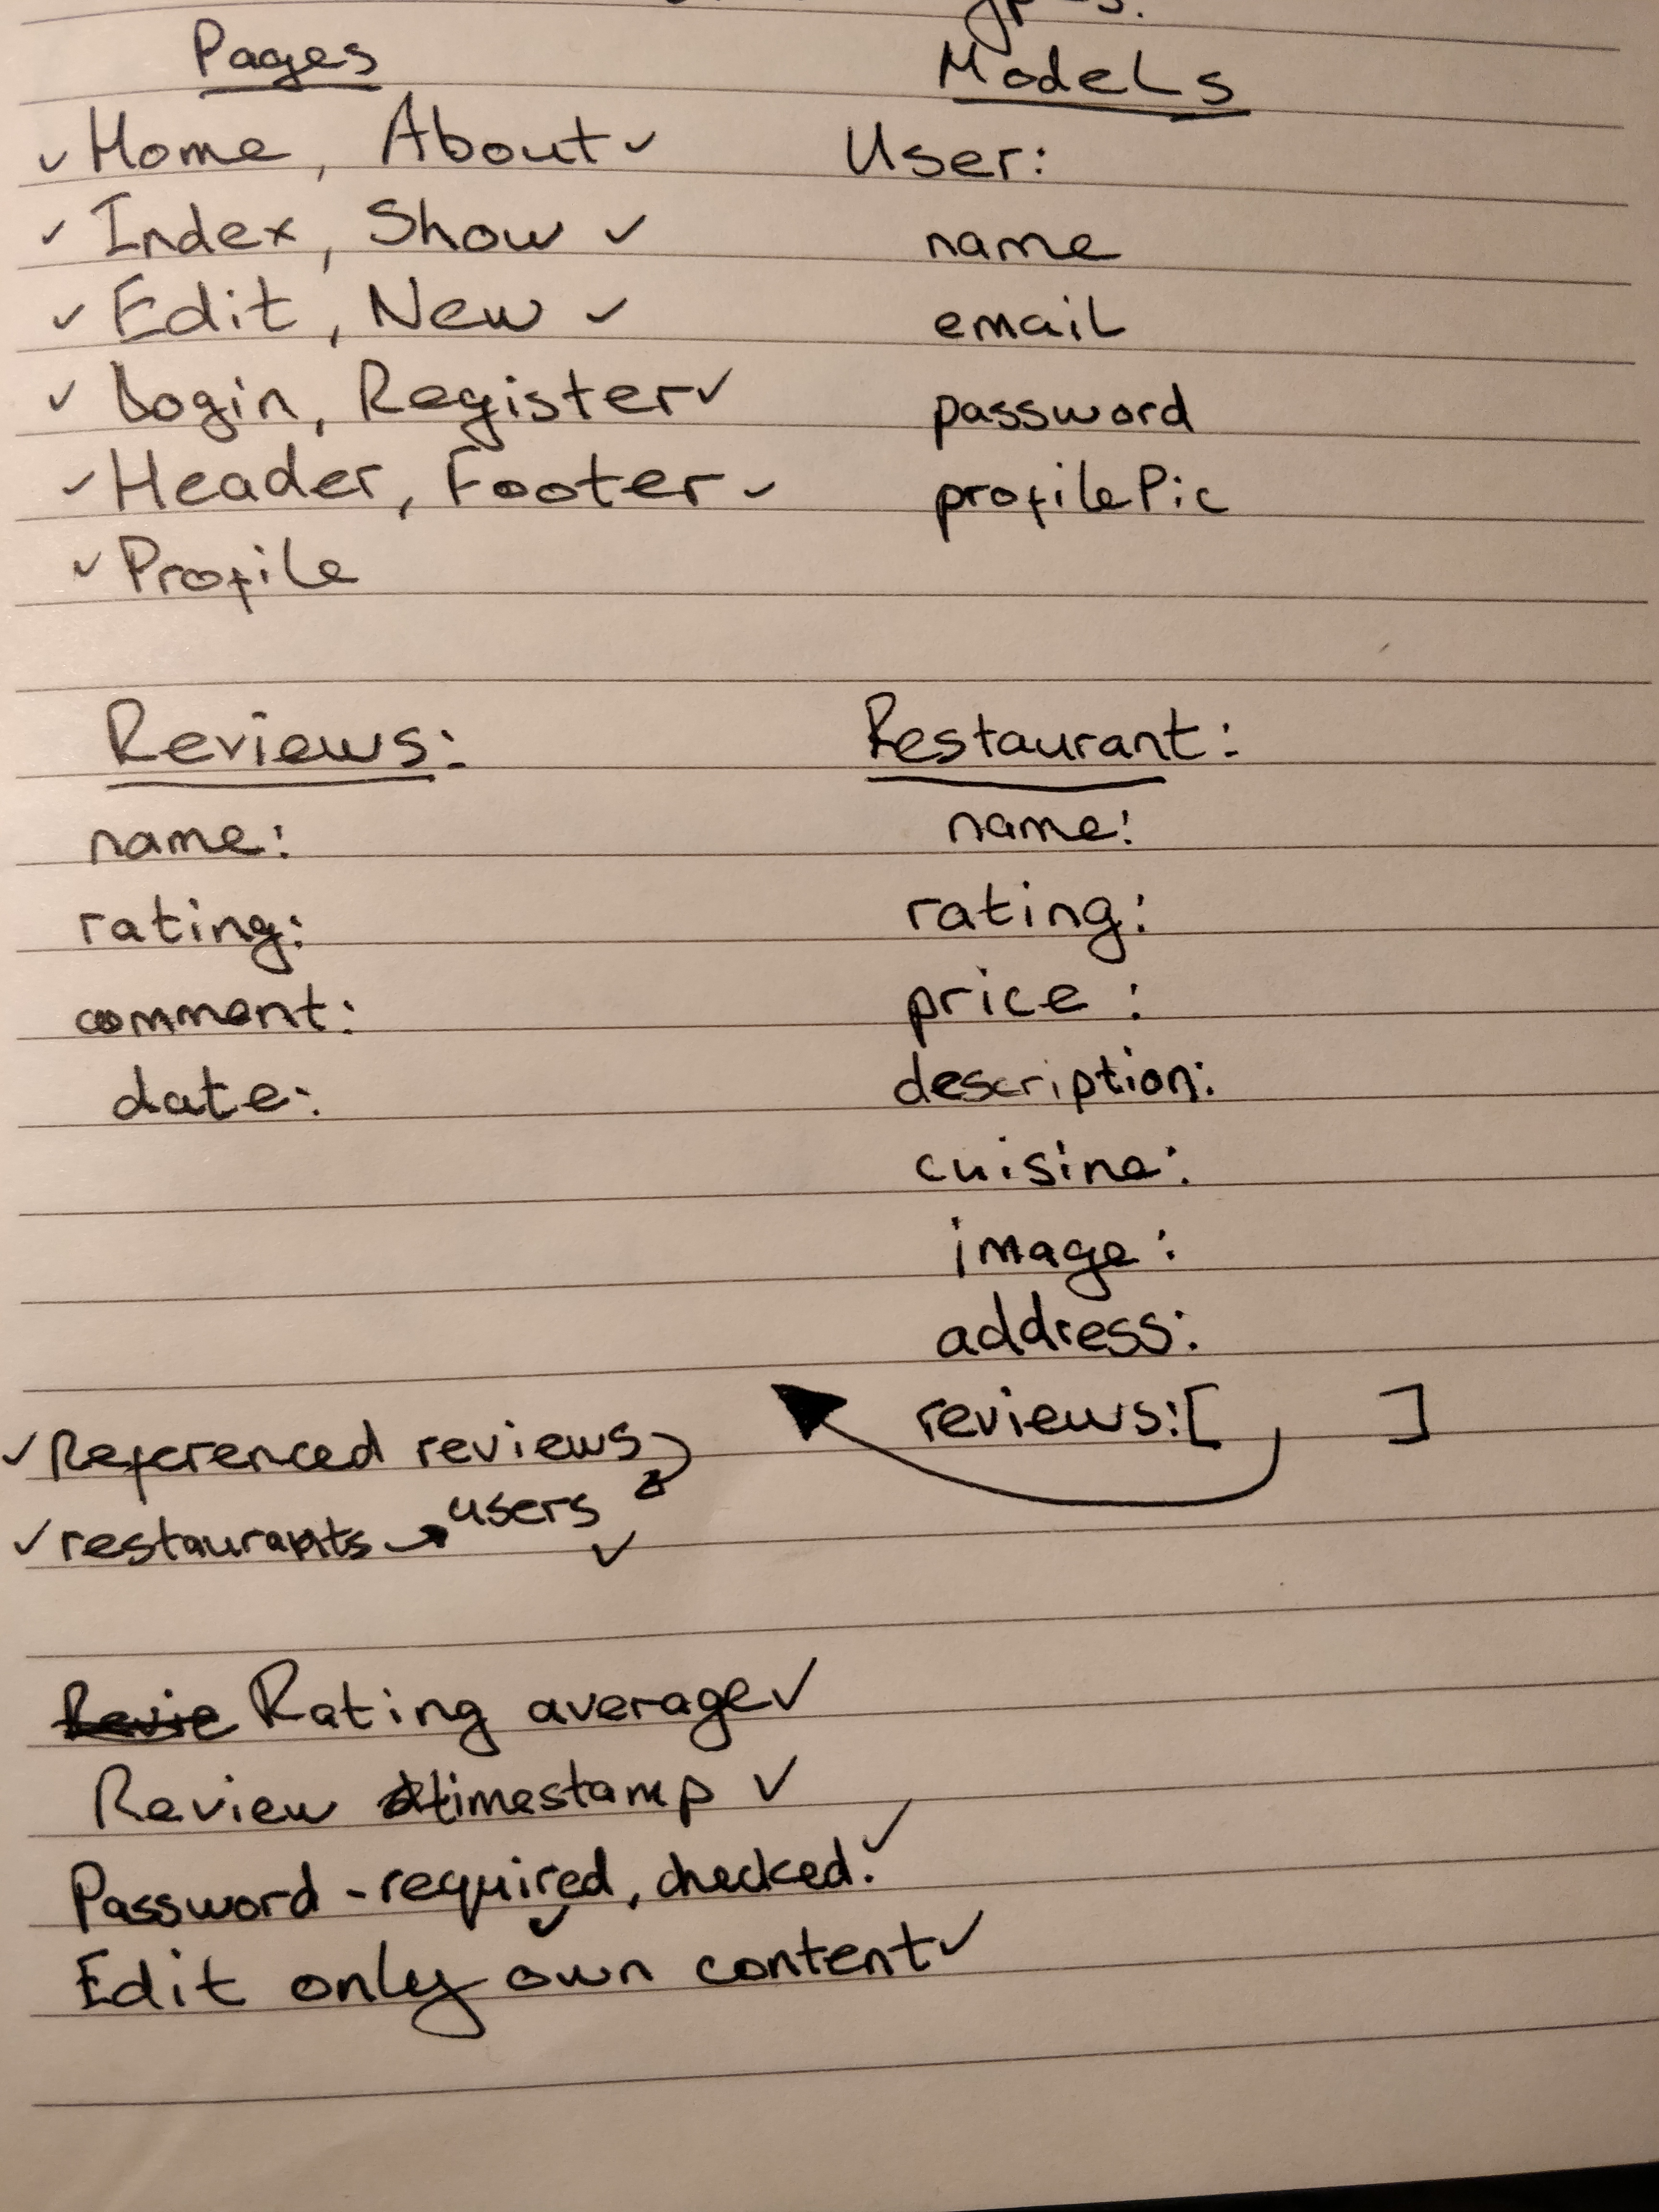 Pages
✓ Home, About ✓
✓ Index, Show ✓
✓ Edit, New ✓
✓ Login, Register ✓
✓ Header, Footer ✓
✓ Profile
Models
User:
name
email
password
profilePic
Reviews:
name:
rating:
comment:
date:
Restaurant:
name:
rating:
price:
description:
cuisine:
image:
address:
reviews:[ ]
✓ Referenced reviews
✓ restaurants → users ✓
Rating average ✓
Review timestamp ✓
Password - required, checked. ✓ ✓
Edit only own content ✓